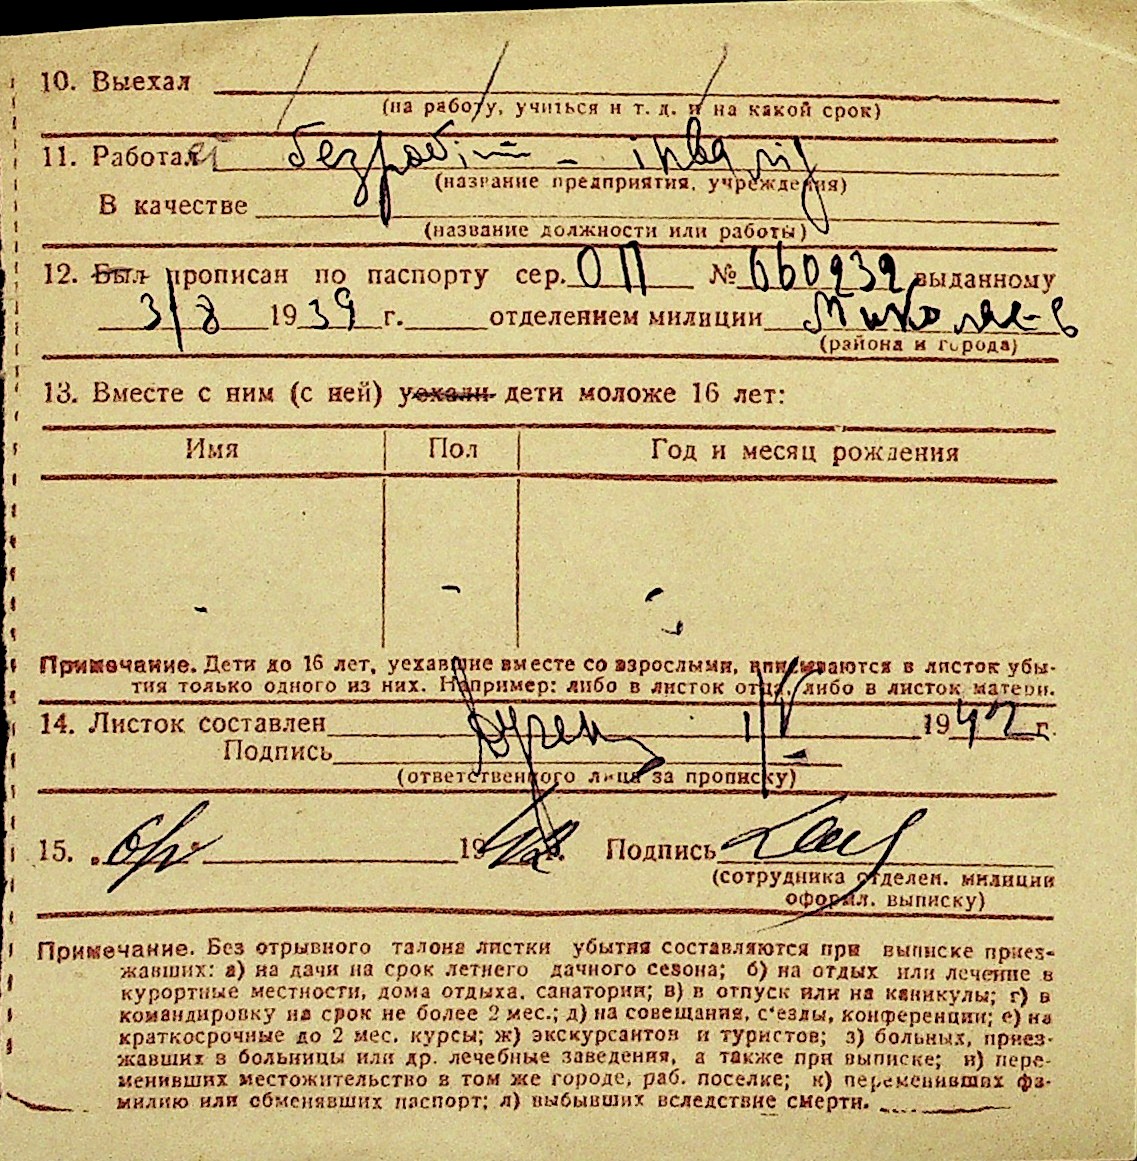 10. Выехал
(на работу, учиться и т. д. и на какой срок)
11. Работает безробітн - інвалід
(название предприятия, учреждения)
В качестве
(название должности или работы)
12. Был прописан по паспорту сер. ОП № 660939 выданному
3/8 1939 г. отделением милиции Миколаев
(района и города)
13. Вместе с ним (с ней) уехали дети моложе 16 лет:
Имя Пол Год и месяц рождения
- - -
Примечание. Дети до 16 лет, уехавшие вместе со взрослыми, вписываются в листок убы-
тия только одного из них. Например: либо в листок отца, либо в листок матери.
14. Листок составлен 1/V 1942 г.
Подпись
(ответственного лица за прописку)
15. „ “ 1942 г. Подпись
(сотрудника отделен. милиции
оформл. выписку)
Примечание. Без отрывного талона листки убытия составляются при выписке приез-
жавших: а) на дачи на срок летнего дачного сезона; б) на отдых или лечение в
курортные местности, дома отдыха, санатории; в) в отпуск или на каникулы; г) в
командировку на срок не более 2 мес.; д) на совещания, с'езды, конференции; е) на
краткосрочные до 2 мес. курсы; ж) экскурсантов и туристов; з) больных, приез-
жавших в больницы или др. лечебные заведения, а также при выписке; и) пере-
менивших местожительство в том же городе, раб. поселке; к) переменивших фа-
милию или обменявших паспорт; л) выбывших вследствие смерти.